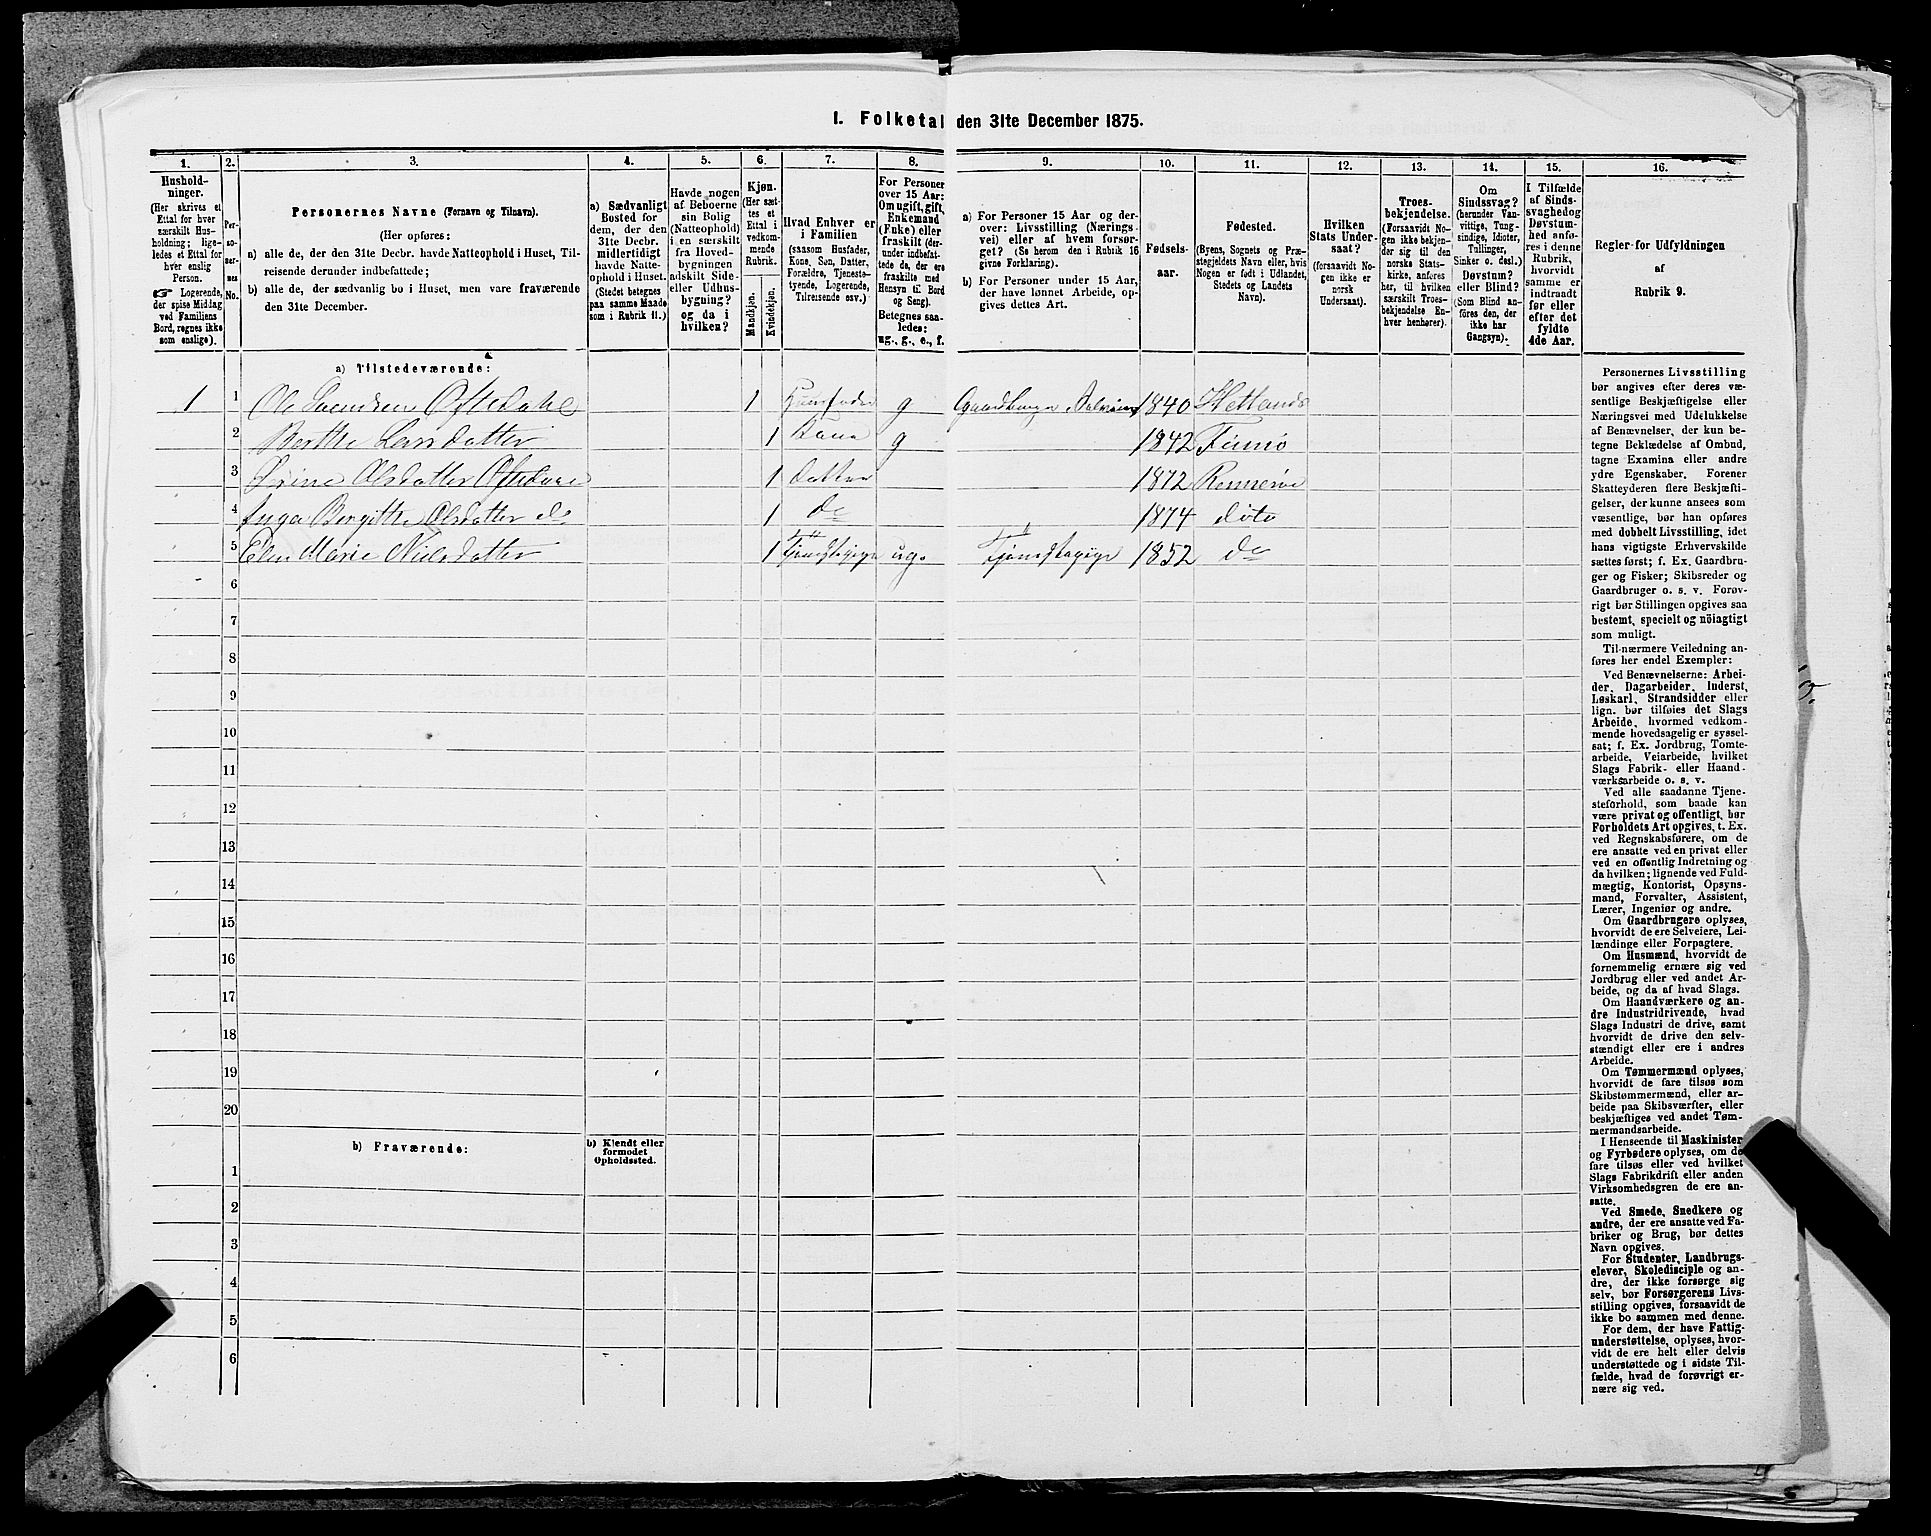 I. Folketal den 31te December 1875.
1. 2. 3. 4. 5. 6. 7. 8. 9. 10. 11. 12. 13. 14. 15. 16.
Hushold-
ninger.
(Her skrives et
Ettal for hver
særskilt Hus-
holdning; lige-
ledes et Ettal for
hver enslig
Person.
☞ Logerende,
der spise Middag
ved Familiens
Bord, regnes ikke
som enslige).
Per-
so-
ner-
nes
No.
Personernes Navne (Fornavn og Tilnavn).
(Her opføres:
a) alle de, der den 31te Decbr. havde Natteophold i Huset, Til-
reisende derunder indbefattede;
b) alle de, der sædvanlig bo i Huset, men vare fraværende
den 31te December.
a) Sædvanligt
Bosted for
dem, der den
31te Decbr.
midlertidigt
havde Natte-
ophold i Huset.
(Stedet betegnes
paa samme Maade
som i Rubrik 11.)
Havde nogen
af Beboerne
sin Bolig
(Natteophold)
i en særskilt
fra Hoved-
bygningen
adskilt Side-
eller Udhus-
bygning?
og da i
hvilken?
Kjøn.
(Her sæt-
tes et
Ettal i
vedkom-
mende
Rubrik.
Mandkjøn.
Kvindekjøn.
Hvad Enhver er
i Familien
(saasom Husfader,
Kone, Søn, Datter,
Forældre, Tjeneste-
tyende, Logerende,
Tilreisende osv.)
For Personer
over 15 Aar:
Om ugift, gift,
Enkemand
(Fuke) eller
fraskilt (der-
under indbefat-
tede de, der ere
fraskilte med
Hensyn til Bord
og Seng).
Betegnes saa-
ledes:
ug., g., e., f.
a) For Personer 15 Aar og der-
over: Livsstilling (Nærings-
vei) eller af hvem forsør-
get? (Se herom den i Rubrik 16
givne Forklaring).
b) For Personer under 15 Aar,
der have lønnet Arbeide, op-
gives dettes Art.
Fødsels-
aar.
Fødested.
(Byens, Sognets og Præ-
stegjeldets Navn eller, hvis
Nogen er født i Udlandet,
Stedets og Landets
Navn).
Hvilken
Stats Under-
saat?
(forsaavidt No-
gen ikke er
norsk
Undersaat).
Troes-
bekjendelse.
(Forsaavidt No-
gen ikke bekjen-
der sig til den
norske Stats-
kirke, anføres
her, til hvilken
særskilt Troes-
bekjendelse En-
hver henhører).
Om
Sindssvag?
(herunder Van-
vittige, Tung-
sindige, Idioter,
Tullinger,
Sinker o. desl.)
Døvstum?
eller Blind?
(Som Blind an-
føres den, der
ikke har
Gangsyn).
I Tilfælde
af Sinds-
svaghedog
Døvstum-
hed anfø-
res i denne
Rubrik,
hvorvidt
samme er
indtraadt
før eller
efter det
fyldte
4de Aar.
Regler for Udfyldningen
af
Rubrik 9.
a) Tilstedeværende:
1 1 Ole Svendsen Oftedahl 1 Huusfader g Gaardbruger Selveier 1840 Hetlands
2 Berthe Larsdatter 1 Kone g 1842 Finnø
3 Olsdatter Oftedahl 1 datter 1872 Rennesø
4 Inga Bergitte Olsdatter do 1 do 1874 dito
5 Elen Marie Nielsdatter 1 Tjenestepige ug. Tjenestepige 1852 do
6
7
8
9
10
11
12
13
14
15
16
17
18
19
20
b) Fraværende:
b) Kjendt eller
formodet
Opholdssted.
1
2
3
4
5
6
Personernes Livsstilling
bør angives efter deres væ-
sentlige Beskjæftigelse eller
Næringsvei med Udelukkelse
af Benævnelser, der kun be-
tegne Beklædelse af Ombud,
tagne Examina eller andre
ydre Egenskaber. Forener
Skatteyderen flere Beskjæfti-
gelser, der kunne ansees som
væsentlige, bør han opføres
med dobbelt Livsstilling, idet
hans vigtigste Erhvervskilde
sættes først; f. Ex. Gaardbru-
ger og Fisker; Skibsreder og
Gaardbruger o. s. v. Forøv-
rigt bør Stillingen opgives saa
bestemt, specielt og nöiagtigt
som muligt.
Til nærmere Veiledning an-
føres her endel Exempler:
Ved Benævnelserne: Arbei-
der, Dagarbeider, Inderst,
Løskarl, Strandsidder eller
lign. bør tilføies det Slags
Arbeide, hvormed vedkom-
mende hovedsagelig er syssel-
sat; f. Ex. Jordbrug, Tomte-
arbeide, Veiarbeide, hvilket
Slags Fabrik- eller Haand-
værksarbeide o. s. v.
Ved alle saadanne Tjene-
steforhold, som baade kan
være privat og offentligt, bør
Forholdets Art opgives, t. Ex.
ved Regnskabsførere, om de
ere ansatte ved en privat eller
ved en offentlig Indretning og
da hvilken; lignende ved Fuld-
mægtig, Kontorist, Opsyns-
mand, Forvalter, Assistent,
Lærer, Ingeniør og andre.
Om Gaardbrugere oplyses,
hvorvidt de ere Selveiere, Lei-
lændinge eller Forpagtere.
Om Husmænd, hvorvidt de
fornemmelig ernære sig ved
Jordbrug eller ved andet Ar-
beide, og da af hvad Slags.
Om Haandværkere og an-
dre Industridrivende, hvad
Slags Industri de drive, samt
hvorvidt de drive den selv-
stændigt eller ere i andres
Arbeide.
Om Tømmermænd oplyses,
hvorvidt de fare tilsøs som
Skibstømmermænd, eller ar-
beide paa Skibsværfter, eller
beskjæftiges ved andet Tøm-
mermandsarbeide.
I Henseende til Maskinister
og Fyrbødere oplyses, om de
fare tilsøs eller ved hvilket
Slags Fabrikdrift eller anden
Virksomhedsgren de ere an-
satte.
Ved Smede, Snedkere og
andre, der ere ansatte ved Fa-
briker og Brug, bør dettes
Navn opgives.
For Studenter, Landbrugs-
elever, Skoledisciple og an-
dre, der ikke forsørge sig
selv, bør Forsørgerens Livs-
stilling opgives, forsaavidt de
ikke bo sammen med denne.
For dem, der have Fattig-
understøttelse, oplyses, hvor-
vidt de ere helt eller delvis
understøttede og i sidste Til-
fælde, hvad de forøvrigt er-
nære sig ved.